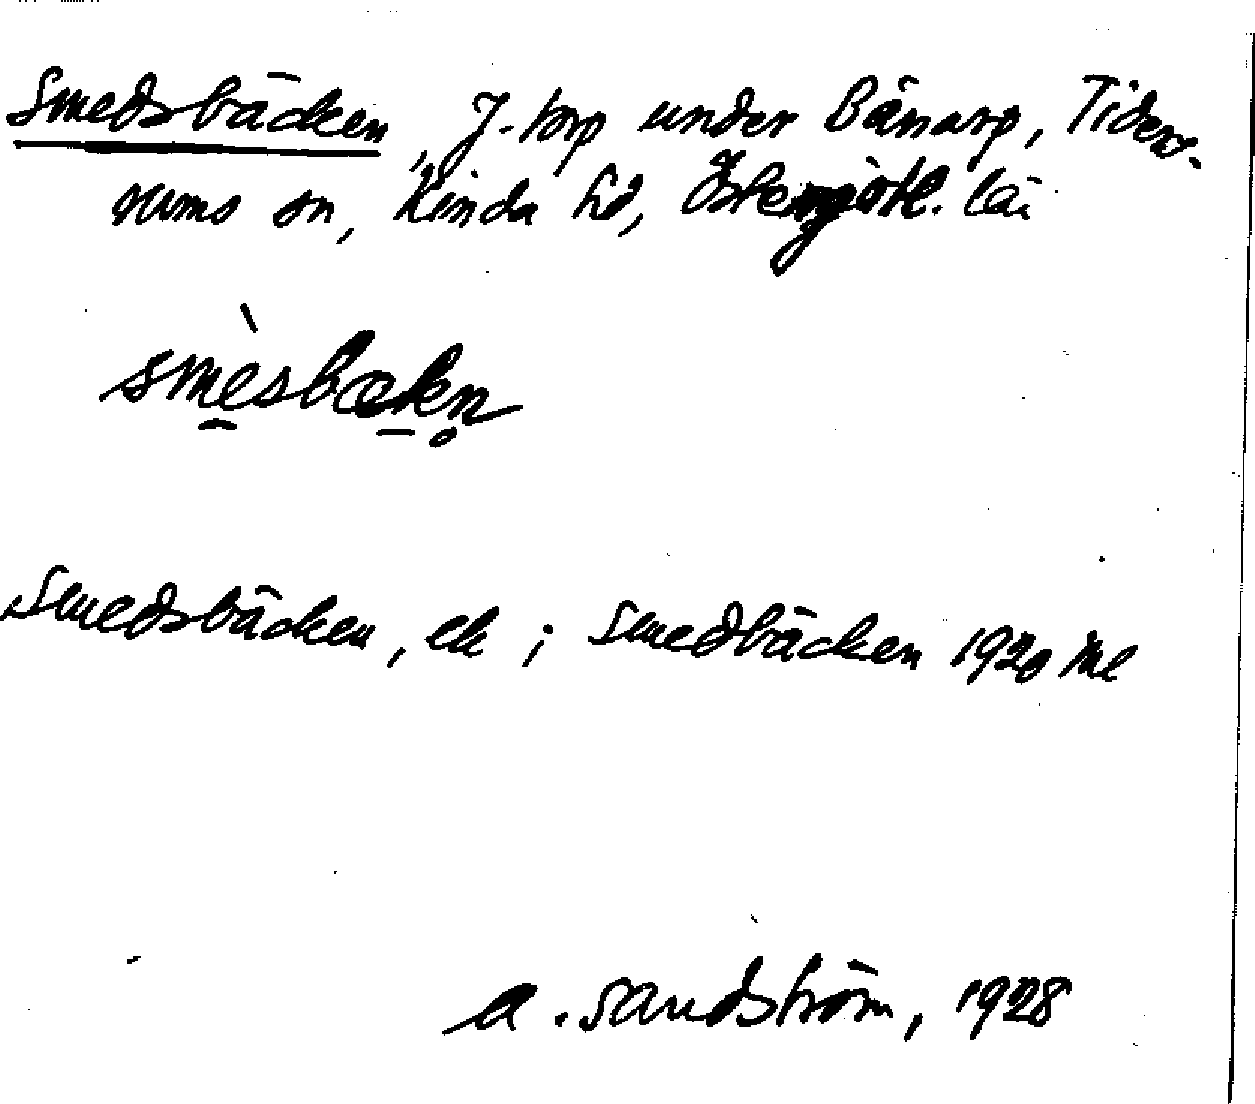 Smedsbäcken, J.-torp under Bånarp, Tiders-
rums sn, Kinda hd, Östergötl. län
smèsbækn̥
Smedsbäcken, ek ; Smedbäcken 1920 Ml
A. Sandström, 1928